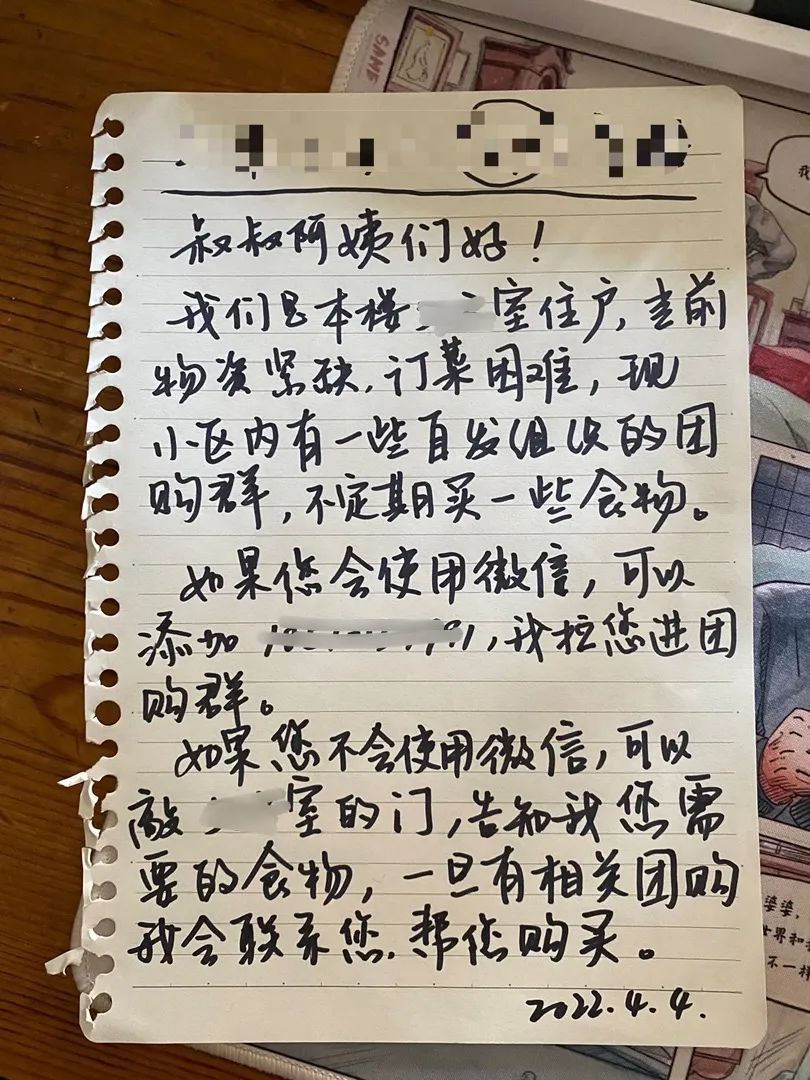 SAME
叔叔阿姨们好！
我们是本楼 室住户，当前
物资紧缺，订菜困难，现
小区内有一些自发组织的团
购群，不定期买一些食物。
如果您会使用微信，可以
添加 ，我拉您进团
购群。
如果您不会使用微信，可以
敲 室的门，告知我您需
要的食物，一旦有相关团购
我会联系您，帮您购买。
2022.4.4.
我
婆婆，
世界和
不一样